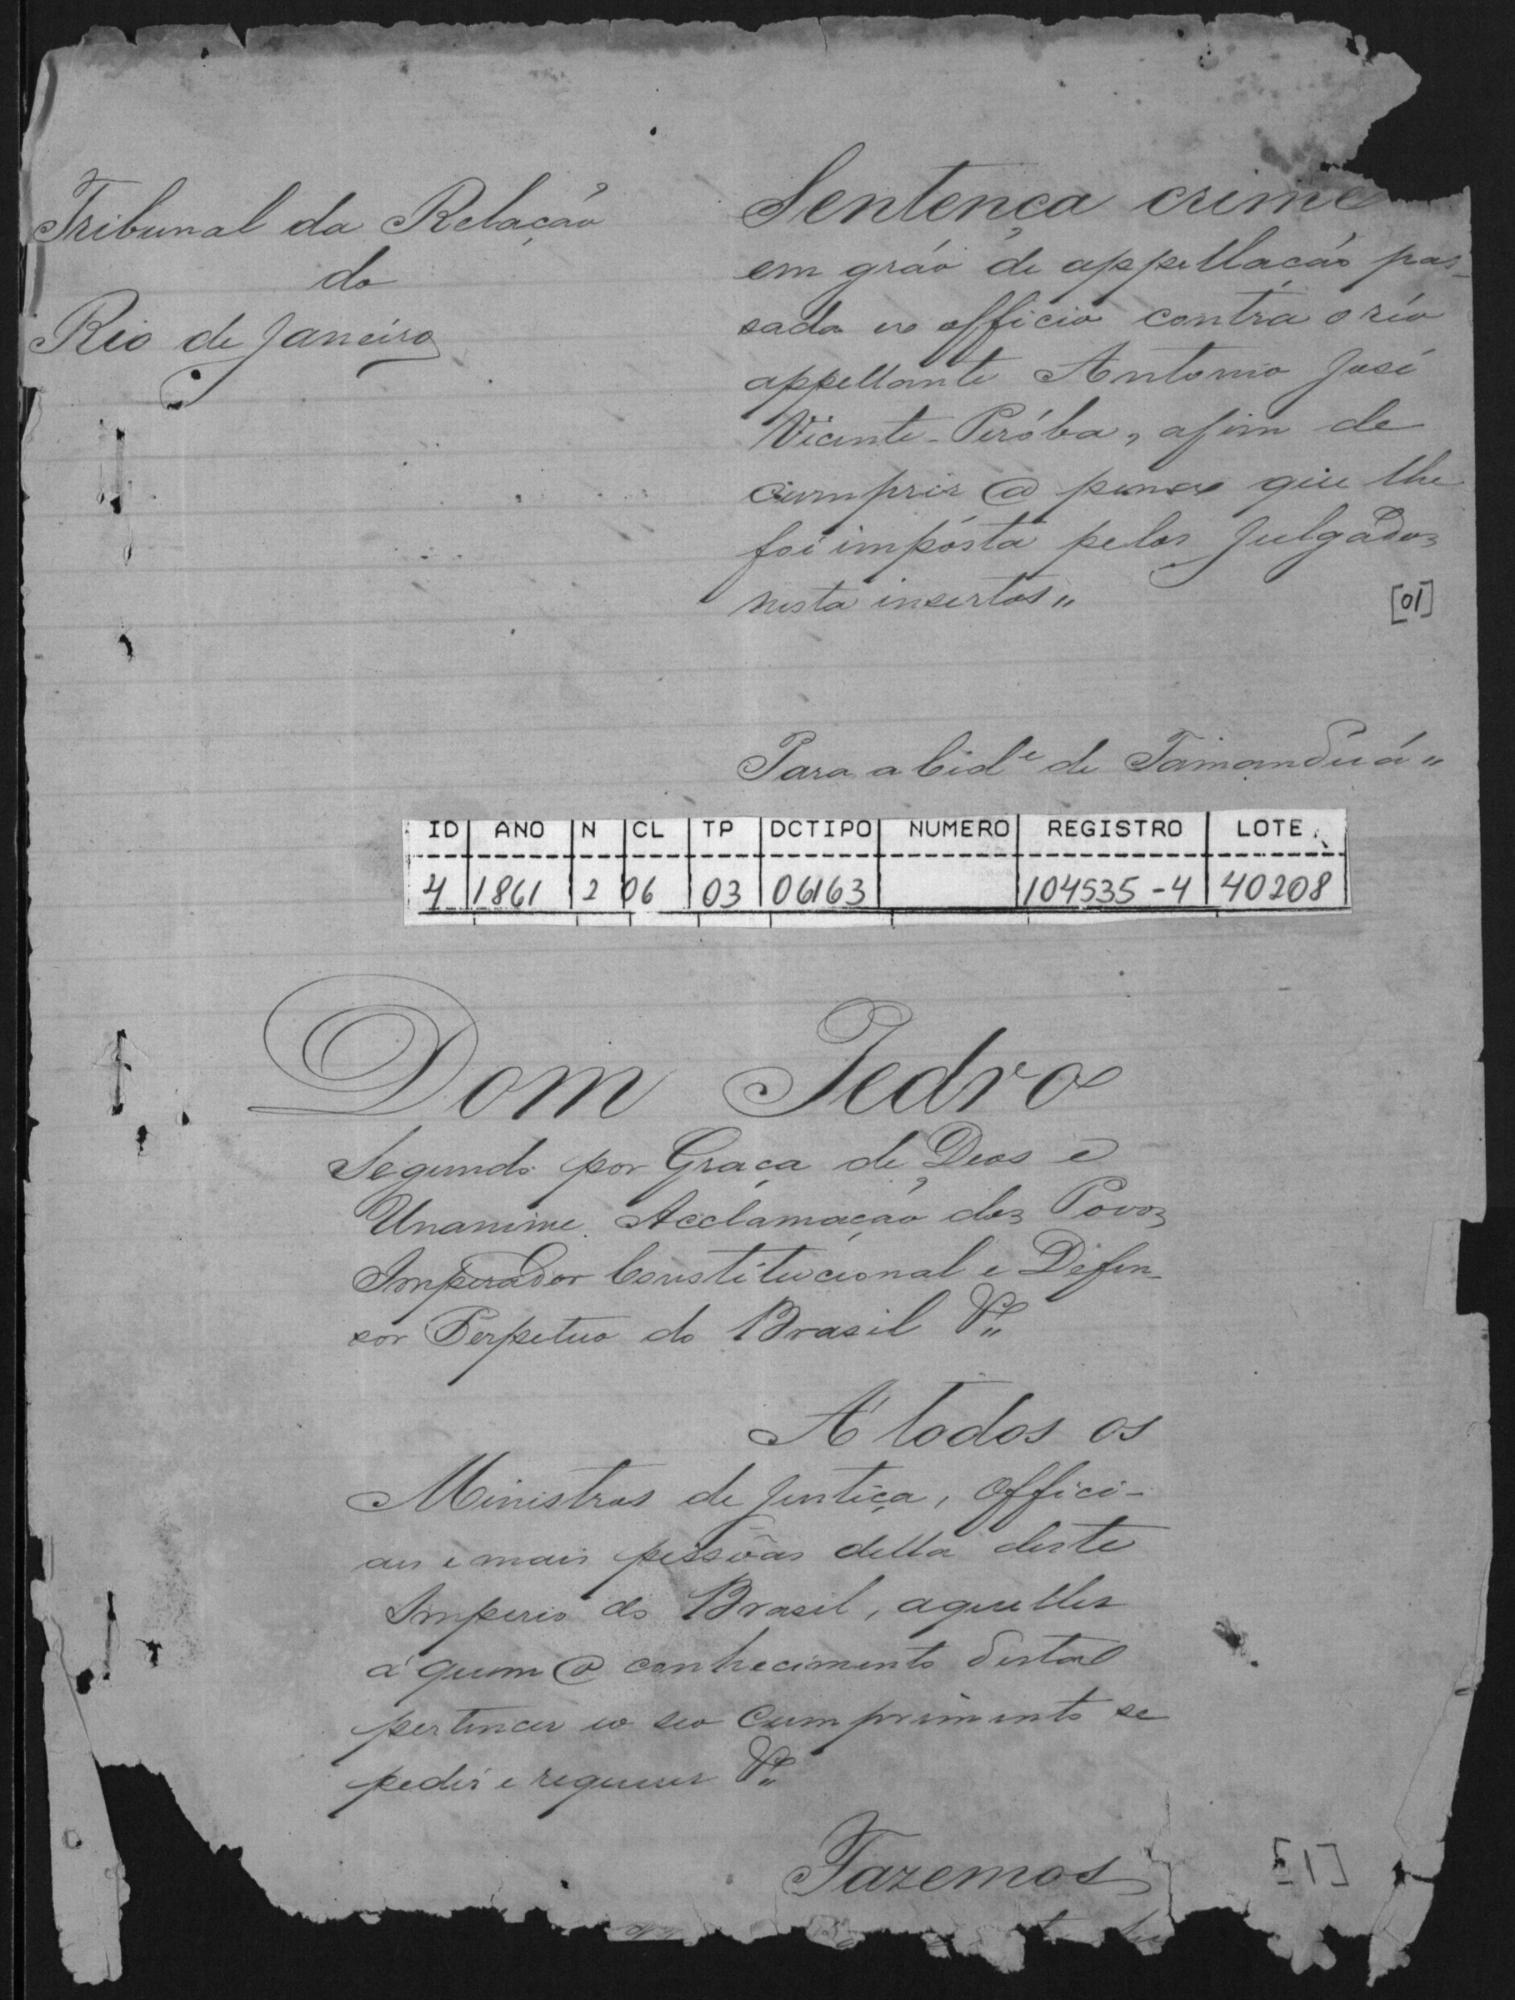 Tribunal da Relação
do
Rio de Janeiro
Sentença crime
em gráo de appellação pas-
sada ex officio contra o réo
appellante Antonio José
Vicente Peróba, afim de
cumprir a pena que lhe
foi impósta pelos Julgados
nesta insertos"
[01]
Para a Cid.e de Tamanduá"
ID ANO N CL TP DCTIPO NUMERO REGISTRO LOTE
4 1861 2 06 03 06163 104535-4 40208
Dom Pedro
Segundo por Graça de Deos e
Unanime Acclamação dos Povos
Imperador Constitucional e Defen-
sor Perpetuo do Brasil &"
A' todos os
Ministros de Justiça, Offici-
aes e mais pessôas della deste
Imperio do Brasil, aquelles
a' quem o conhecimento desta
pertencer e o seo cumprimento se
pedir e requerer &"
Fazemos
[1]